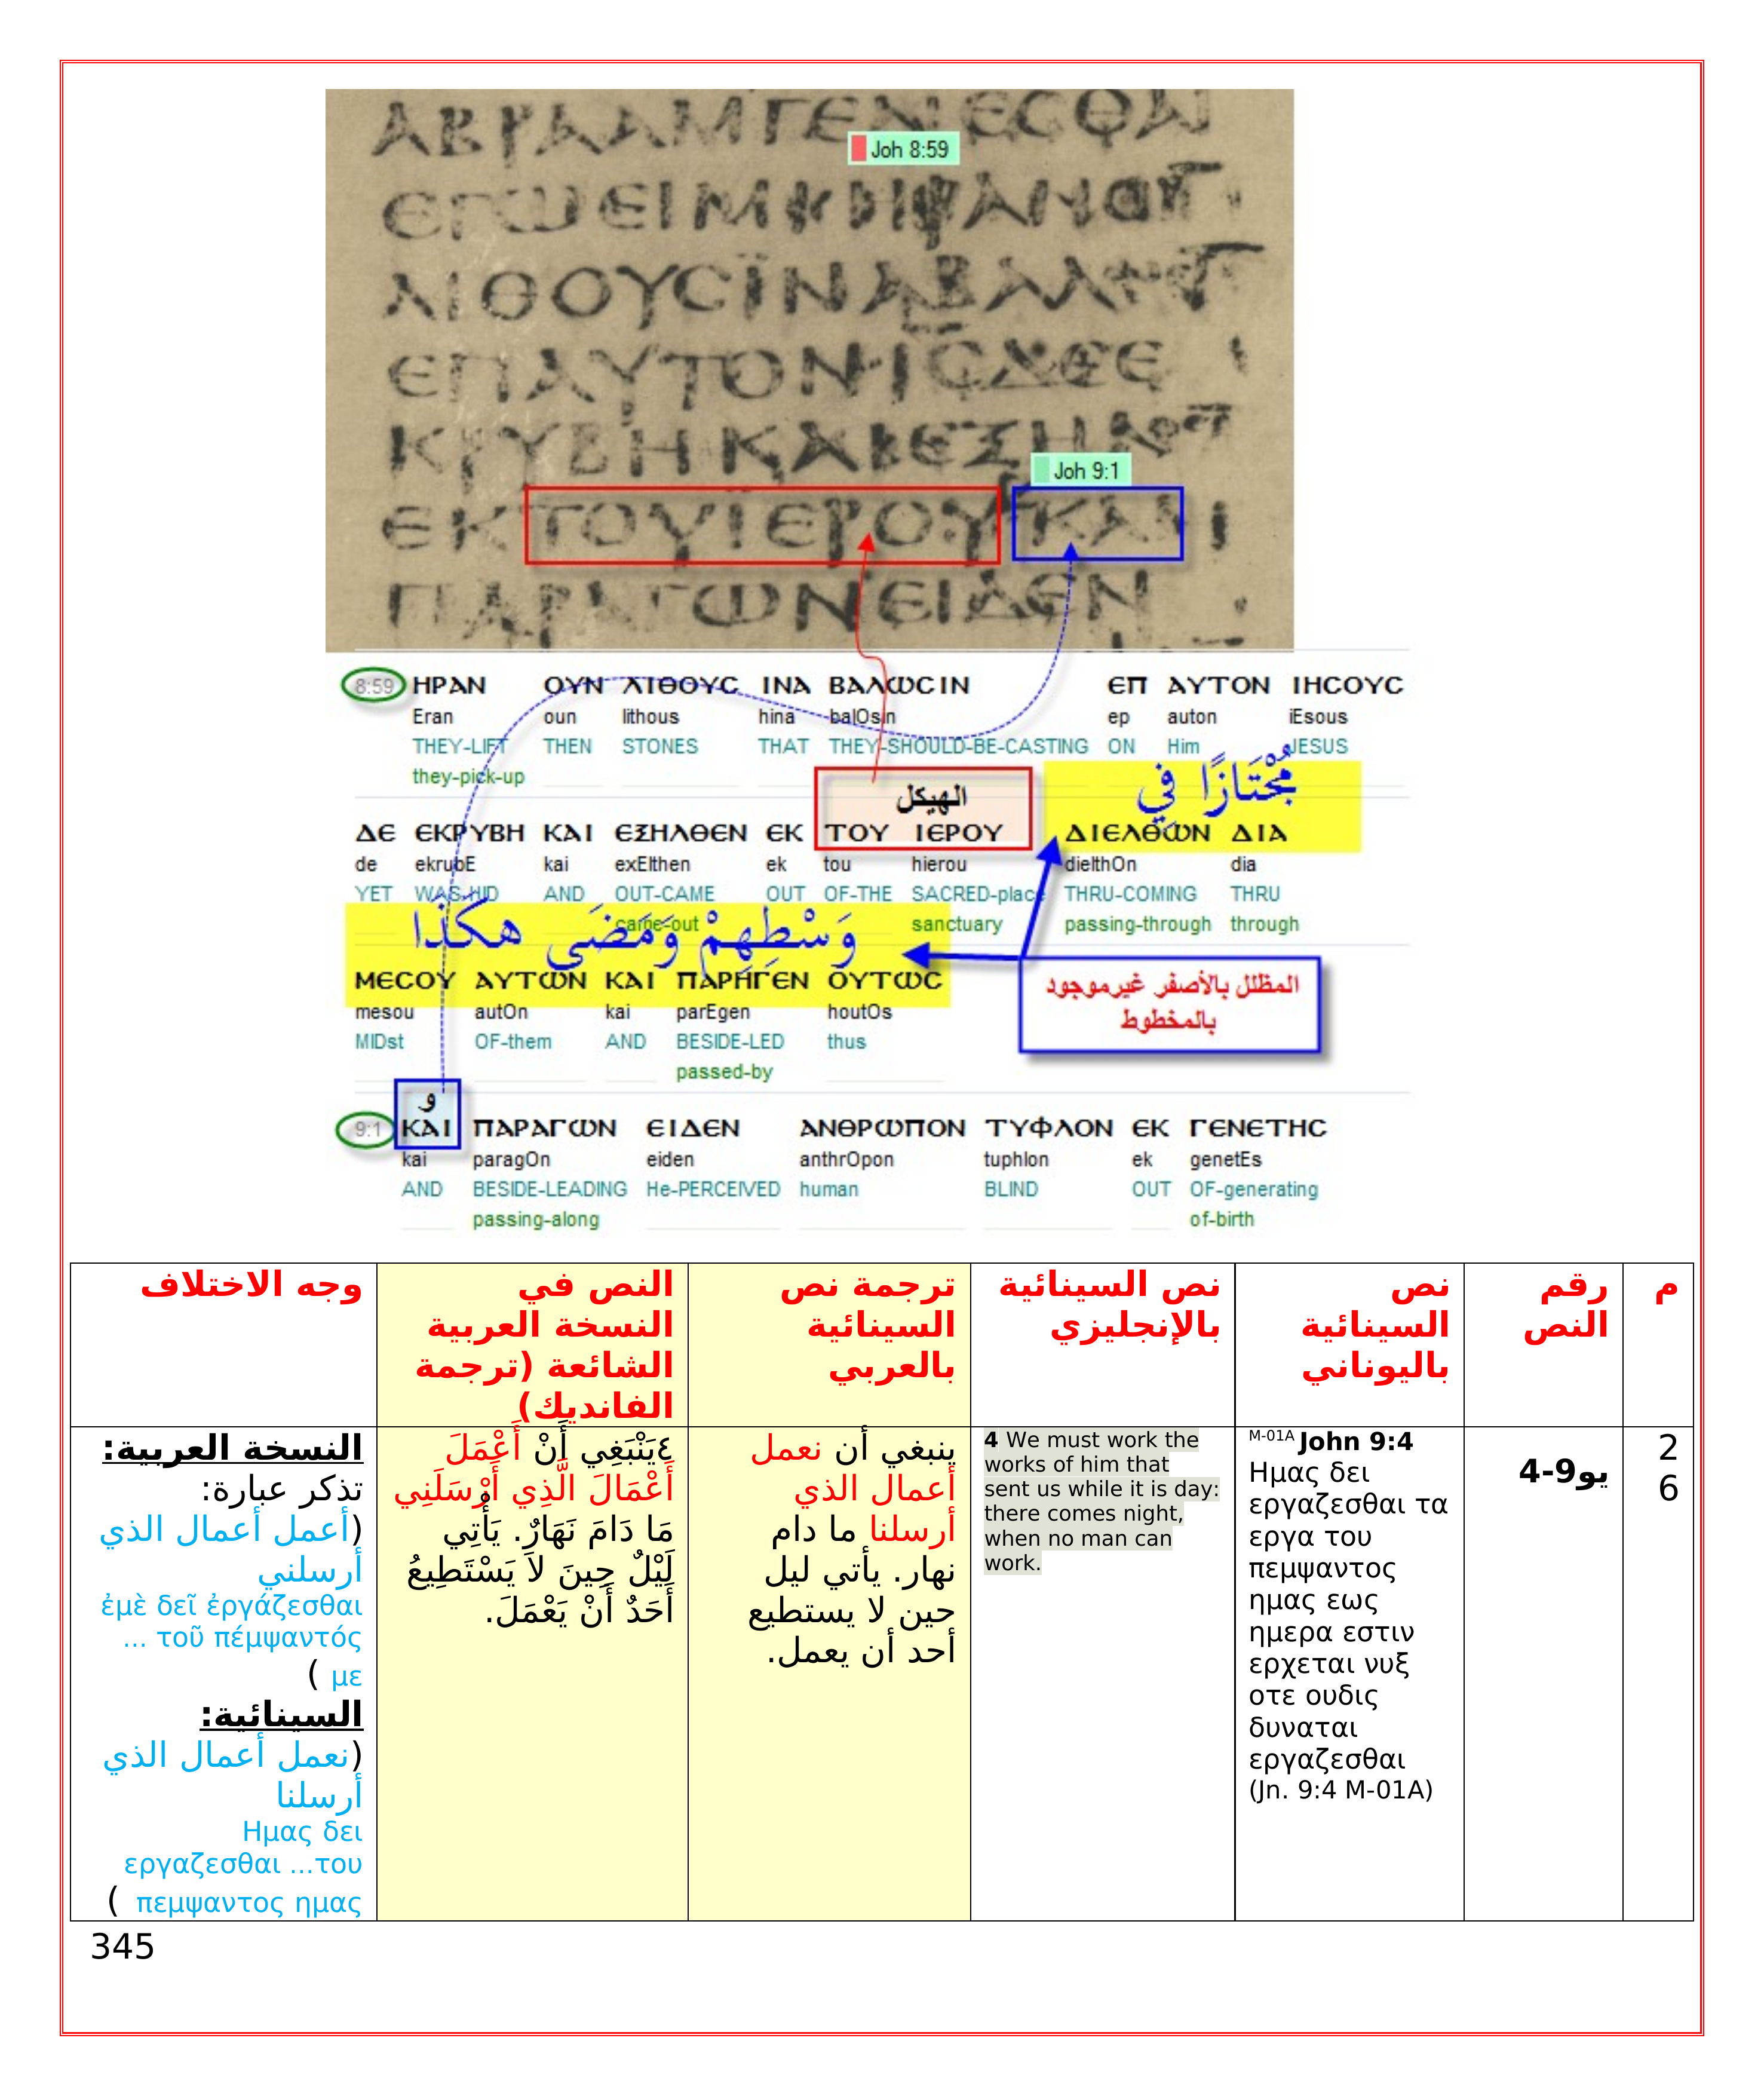 ΑΒΡΑΑΜΓΕΝΕϹΘΑΙ
Joh 8:59
ΕΓΩΕΙΜΙ
ΛΙΘΟΥϹΪΝΑΒΑΛΩ
ΕΠΑΥΤΟΝ·ΙϹΔΕΕ
ΚΡΥΒΗΚΑΙΕΞΗΛ
Joh 9:1
ΕΚΤΟΥΪΕΡΟΥΚΑΙ
ΠΑΡΑΓΩΝΕΙΔΕΝ
8:59 ΗΡΑΝ ΟΥΝ ΛΙΘΟΥϹ ΙΝΑ ΒΑΛΩϹΙΝ ΕΠ ΑΥΤΟΝ ΙΗϹΟΥϹ
Eran oun lithous hina balOsin ep auton iEsous
THEY-LIFT THEN STONES THAT THEY-SHOULD-BE-CASTING ON Him JESUS
they-pick-up
مُجْتَازًا فِي
الهيكل
ΔΕ ΕΚΡΥΒΗ ΚΑΙ ΕΞΗΛΘΕΝ ΕΚ ΤΟΥ ΙΕΡΟΥ ΔΙΕΛΘΩΝ ΔΙΑ
de ekrubE kai exElthen ek tou hierou dielthOn dia
YET WAS-HID AND OUT-CAME OUT OF-THE SACRED-place THRU-COMING THRU
came-out sanctuary passing-through through
وَسْطِهِمْ وَمَضَى هكَذَا
ΜΕϹΟΥ ΑΥΤΩΝ ΚΑΙ ΠΑΡΗΓΕΝ ΟΥΤΩϹ
mesou autOn kai parEgen houtOs
MIDst OF-them AND BESIDE-LED thus
passed-by
المظلل بالأصفر غيرموجود
بالمخطوط
و
9:1 ΚΑΙ ΠΑΡΑΓΩΝ ΕΙΔΕΝ ΑΝΘΡΩΠΟΝ ΤΥΦΛΟΝ ΕΚ ΓΕΝΕΤΗϹ
kai paragOn eiden anthrOpon tuphlon ek genetEs
AND BESIDE-LEADING He-PERCEIVED human BLIND OUT OF-generating
passing-along of-birth
م
رقم
النص
نص
السينائية
باليوناني
نص السينائية
بالإنجليزي
ترجمة نص
السينائية
بالعربي
النص في
النسخة العربية
الشائعة (ترجمة
الفانديك)
وجه الاختلاف
2
6
يو9-4
M-01A John 9:4
Ημας δει
εργαζεσθαι τα
εργα του
πεμψαντος
ημας εως
ημερα εστιν
ερχεται νυξ
οτε ουδις
δυναται
εργαζεσθαι
(Jn. 9:4 M-01A)
4 We must work the
works of him that
sent us while it is day:
there comes night,
when no man can
work.
ينبغي أن نعمل
أعمال الذي
أرسلنا ما دام
نهار. يأتي ليل
حين لا يستطيع
أحد أن يعمل.
٤يَنْبَغِي أَنْ أَعْمَلَ
أَعْمَالَ الَّذِي أَرْسَلَنِي
مَا دَامَ نَهَارٌ. يَأْتِي
لَيْلٌ حِينَ لاَ يَسْتَطِيعُ
أَحَدٌ أَنْ يَعْمَلَ.
النسخة العربية:
تذكر عبارة:
(أعمل أعمال الذي
أرسلني
ἐμὲ δεῖ ἐργάζεσθαι
... τοῦ πέμψαντός
με )
السينائية:
(نعمل أعمال الذي
أرسلنا
Ημας δει
εργαζεσθαι ...του
πεμψαντος ημας )
345